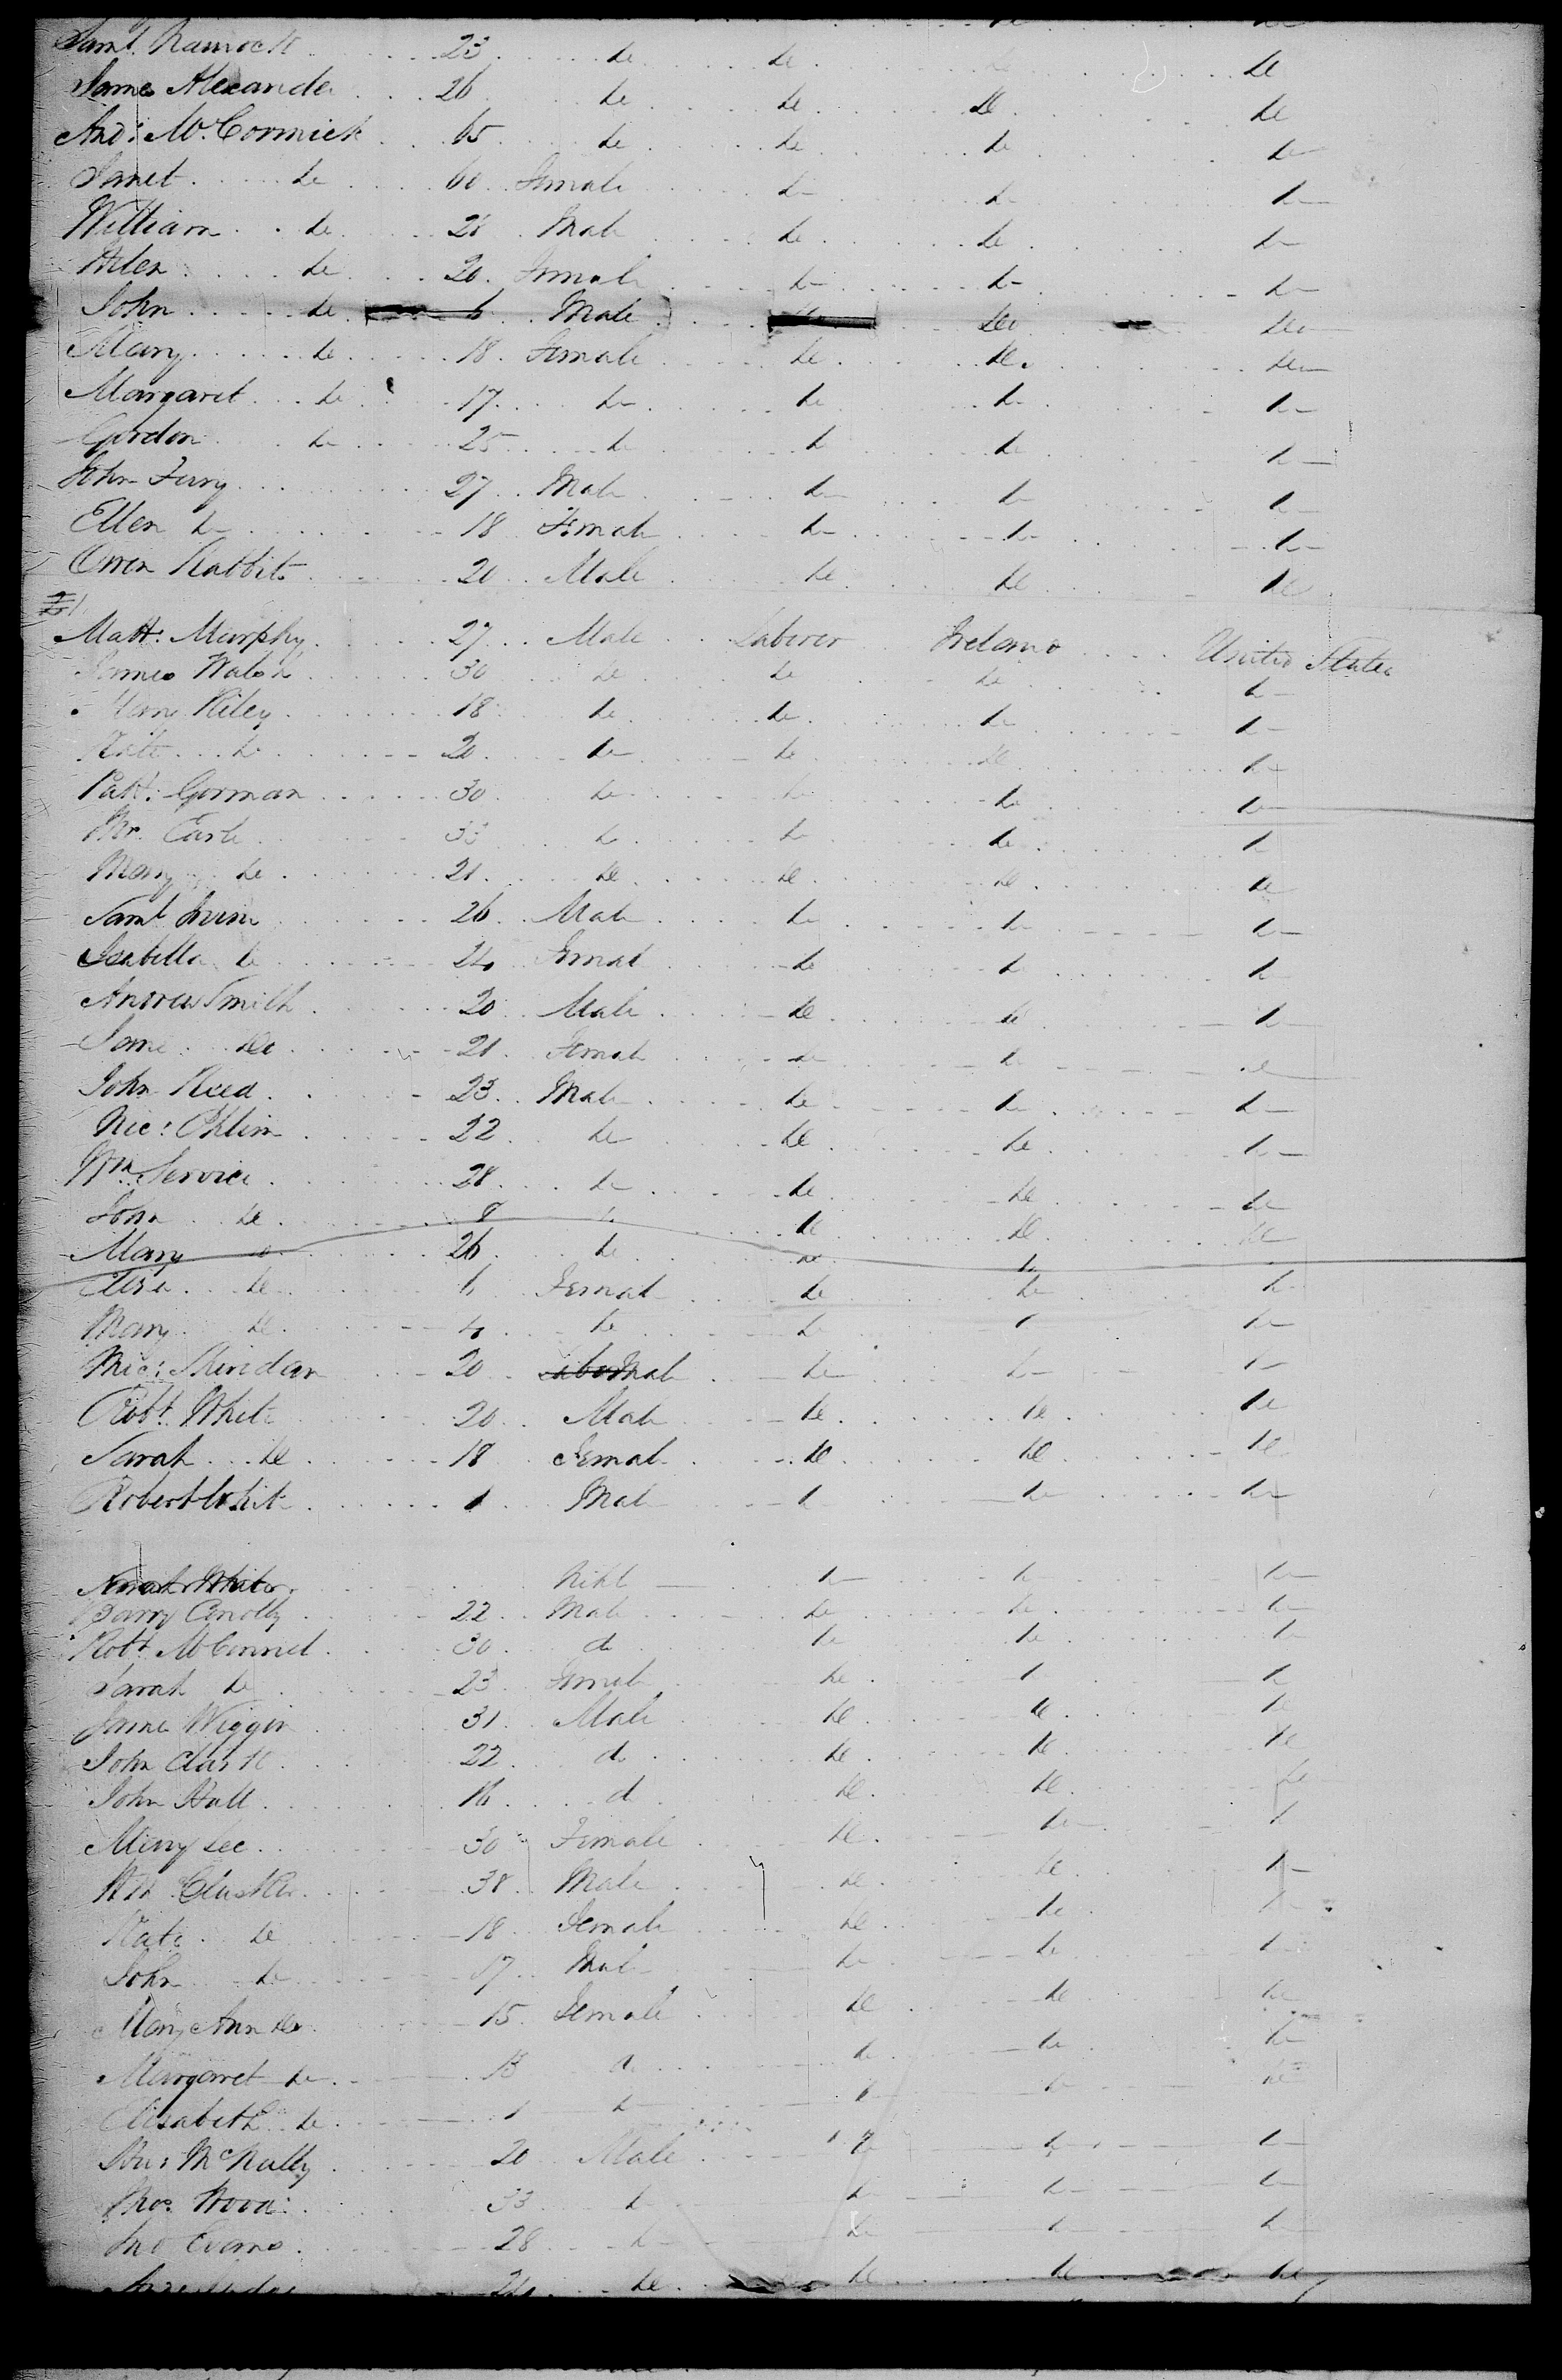 Saml. 23 do do do
James Alexander 26 do do do do
And: McCormick 65 do do do do
Janet do 60 Female do do do
William do 28 Male do do do
do 20 Female do do do
John do 6 Male do do
Mary do 18 Female do do do
Margaret do 17 do do do do
Gordon do 25 do do do do
John 27 Male do do do
Ellen do 18 Female do do do
Owen Rabbits 20 Male do do do
Matt: Murphy 27 Male Laborer Ireland United States
James Walsh 30 do do do do
Mary Riley 18 do do do do
do 20 do do do do
Patt: Gorman 30 do do do do
Mr. 33 do do do do
Mary do 21 do do do do
Saml 26 Male do do do
Isabella do 24 Female do do do
Andrew Smith 20 Male do do do
Jane do 21 Female do do do
John Reed 23 Male do do do
Nic: 22 do do do do
Wm. Service 28 do do do do
John do 8 do do do do
Mary do 26 do do do do
do 6 Female do do do
Mary do 4 do do do do
Mic: Sheridan 20 Male do do do
Robt. White 20 Male do do do
Sarah do 18 Female do do do
Robert White 1 Male do do do
Sarah White do do do
Barry Conolly 22 Male do do do
Robt. McConnel 30 do do do do
Sarah do 23 Female do do do
Wiggin 31 Male do do do
John Clark 22 do do do do
John Hall 16 do do do do
Lee 30 Female do do do
38 Male do do do
Kate do 18 Female do do do
John do 17 Male do do do
Mary Ann do 15 Female do do do
Margaret do 13 do do do do
Elisabeth do 1 do do do do
McNally 20 Male do do do
Thos. 33 do do do do
Jno Evans 28 do do do do
24 do do do do